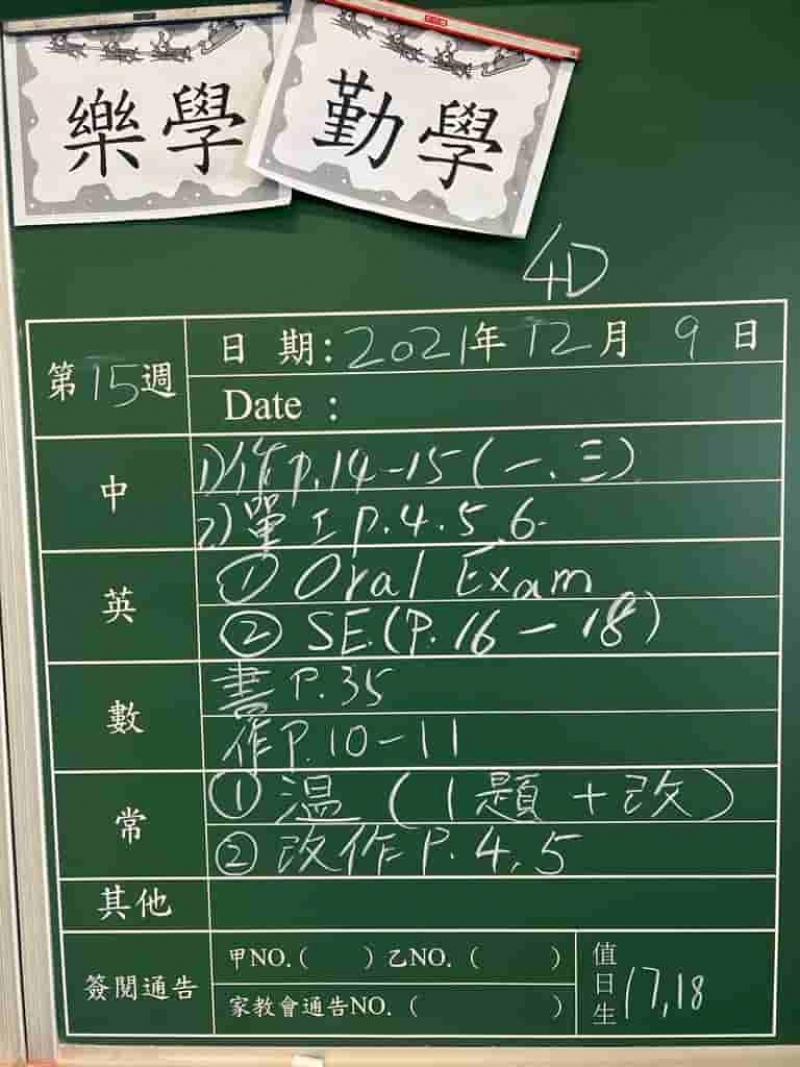 樂學
勤學
4D
第15週
日 期: 2021年 12月 9日
Date :
中
1)作 P.14-15 (一、三)
2)單工 P.4.5.6.
英
① Oral Exam
② SE.(P.16-18)
數
書 P.35
作 P.10-11
常
① 溫 (1題+改)
② 改作 P.4,5
其他
簽閱通告
甲NO.( ) 乙NO. ( )
家教會通告NO. ( )
值日生 17,18